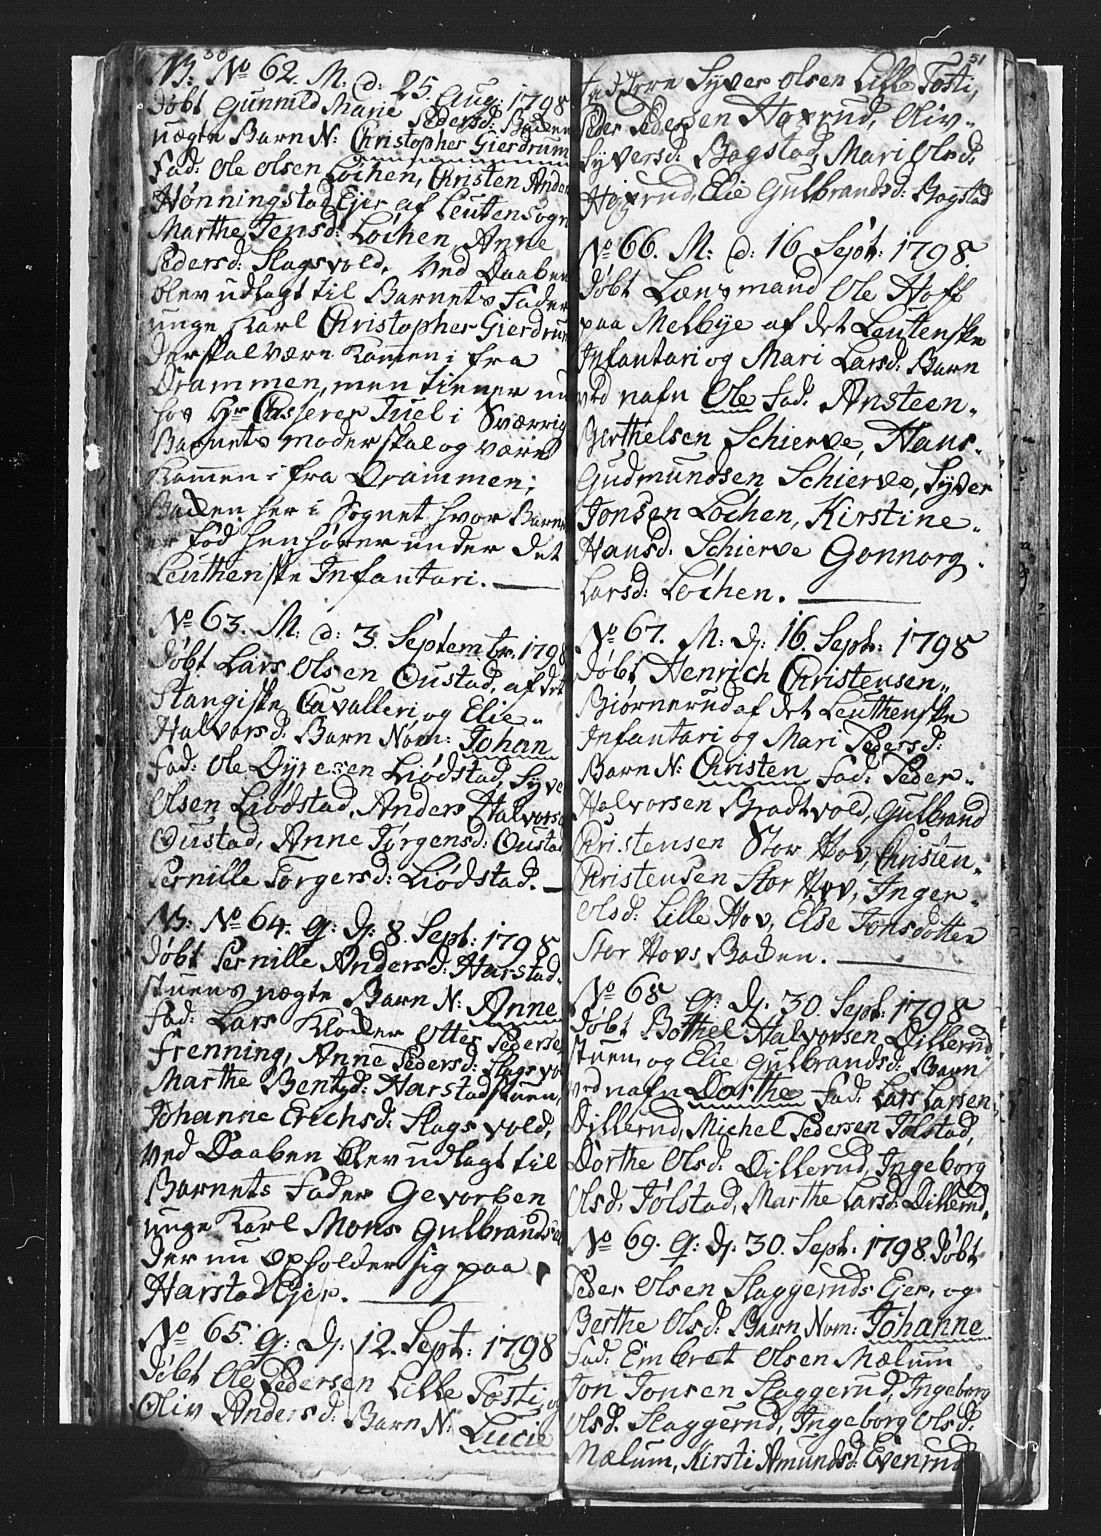 50
NB: No 62. M. d: 25. Aug: 1798
Døbt Gunnild Marie Pedersd: Baden
uægte Barn N: Christopher Gierdrum
Fad: Ole Olsen Løchen, Christen Anders
Hønningstad Ejer af Leutensogn
Marthe Jensd: Løchen, Anne
Pedersd: Slagsvold. Ved Daaben
blev udlagt til Barnets Fader
unge Karl Christopher Gierdrum
der skal være kommen i fra
Drammen, men tiener nu
hos Hr Casserer Juel i Sværrig
Barnets moder skal og være
Kommen i fra Drammen;
Baden her i Sognet, hvor Barnet
er fød henhører under det
Leuthenske Infantari.
No 63. M: d: 3. Septembr. 1798
Døbt Lars Olsen Oustad, af det
Stangiske Cavalleri og Elie
Halvorsd: Barn Nom: Johan
Fad: Ole Dyresen Liødstad, Syver
Olsen Liødstad, Anders Halvorsen
Oustad, Anne Jørgensd: Oustad
Pernille Torgersd: Liødstad.
NB: No 64. g: Dj: 8. Sept: 1798
Døbt Pernille Andersd: Harstad
stuens uægte Barn N: Anne
Fad: Lars Klocker Otter Pedersen
Frenning, Anne Pedersd: Slagsvold
Marthe Bentsd: Harstadstuen,
Johanne Erichsd: Slagsvold,
Ved Daaben blev udlagt til
Barnets Fader Gevorben
unge Karl Mons Gulbrandsen
der nu opholder sig paa
Harstad Ejer.
No 65. g: Dj. 12. Sept: 1798
Døbt Ole Pedersen Lille Tosti, og
Oliv Andersd: Barn N: Lucie
51
Faddere Syver Olsen Lille Tosti,
Peder Pedersen Hoxrud, Oliv
Syversd: Bagstad, Mari Olsd:
Hoxrud, Elie Gulbrandsd: Bagstad
No 66. M: d: 16. Sept: 1798
Døbt Lænsmand Ole Hoff
paa Melbye af det Leutenske
Infantari og Mari Larsd: Barn
ved nafn Ole Fad. Ansteen
Berthelsen Schierve, Hans
Gudmundsen Schierve, Syver
Jonsen Løchen, Kirstine
Hansd: Schierve Gonnorg
Larsd: Løchen.
No 67. M: Dj: 16. Sept: 1798
Døbt Henrich Christensen
Biørnerud af det Leuthenske
Infantari og Mari Pedersd:
Barn N: Christen Fad: Peder
Halvorsen Bradtvold, Gulbrand
Christensen Stor Hov, Christen
Christensen Stor Hov, Inger
Olsd: Lille Hov, Else Jonsdotter
Stor Hovs Baden.
No 68 g: Dj. 30. Sept: 1798
Døbt Bothel Halvorsen Dillerud
stuen og Elie Gulbrandsd: Barn
ved nafn Dorthe Fad: Lars Larsen
Dillerud, Michel Pedersen Tolstad,
Dorthe Olsd: Dillerud, Ingeborg
Olsd. Tolstad, Marthe Larsd: Dillerud.
No 69. g: Dj. 30. Sept: 1798. Døbt
Peder Olsen Slaggeruds Ejer, og
Berthe Olsd: Barn Nom: Johanne
Fad: Embret Olsen Mælum
Jon Jonsen Slaggerud, Ingeborg
Olsd: Slaggerud, Ingeborg Olsd:
Mælum, Kirsti Amundsd: Evenrud